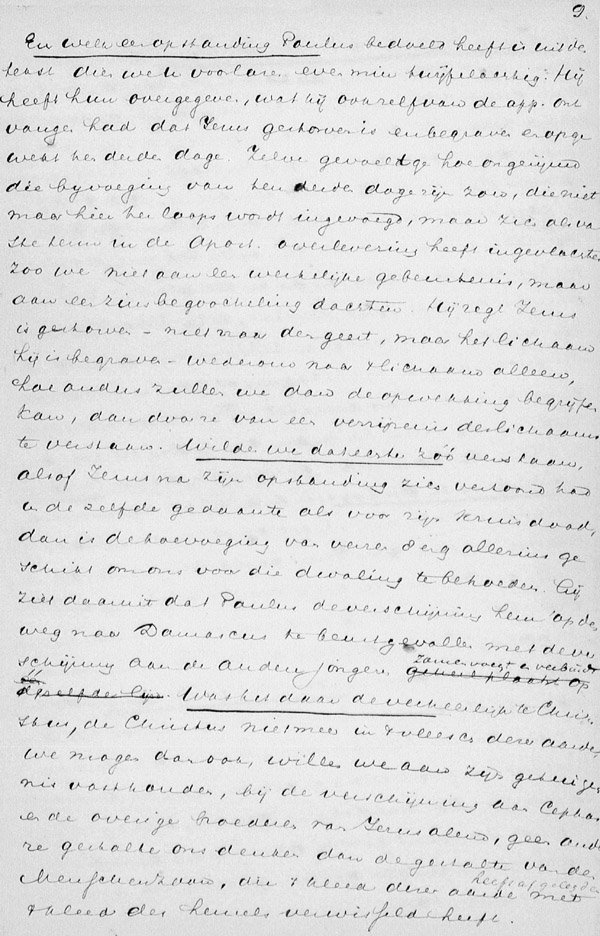 9.
En welk eer opstanding Paulus bedoeld heeft is uit de
tekst dien we u voorlazen even min twijfelachtig. Hij
heeft hun overgegeven, wat hij ook zelf van de app. ont
vangen had dat Jezus gestorven is en begraven en opge
wekt ten derden dage. Zelve gevoelt ge hoe ongerijmd
die byvoeging van ten derden dage zijn zou, die niet
maar hier ter loops wordt ingevoegd, maar zich als va
ste term in de Apost. overlevering heeft ingevlochten
zoo we niet aan een werkelijke gebeurtenis, maar
aan een zinsbegoocheling dachten. Hij zegt Jezus
is gestorven – niet naar den geest, maar het lichaam
hij is begraven – wederom naar t lichaam alleen,
hoe anders zullen we dan de opwekking begrijpen
kan, dan door ze van een verrijzenis des lichaams
te verstaan. Wilde we dat echter zóó verstaan,
alsof Jezus na zijn opstanding zich vertoond had
in de zelfde gedaante als voor zijn kruisdood,
dan is de toevoeging van vers 8 erg allerins ge
schikt om ons voor die dwaling te behoeden. Gij
ziet daaruit dat Paulus de verschijning hem op de
weg naar Damascus te beurt gevallen met de ver
schijning aan de andere jongeren zamenvoegt en verbindt
geheel plaatst op
dezelfde lijn. Was het daar de verheerlijkte Chris
tus, de Christus niet meer in t vleesch dezer aarde,
we mogen dan ook, willen we aan zijn getuige
nis vasthouden, bij de verschijning aan Cephas
en de overige broederen van Jeruzalem, geen ande
re gestalte ons denken dan de gestalte van den
Menschenzoon, die t kleed dezer aarde heeft afgelegd en met
t kleed des hemels verwisseld heeft.